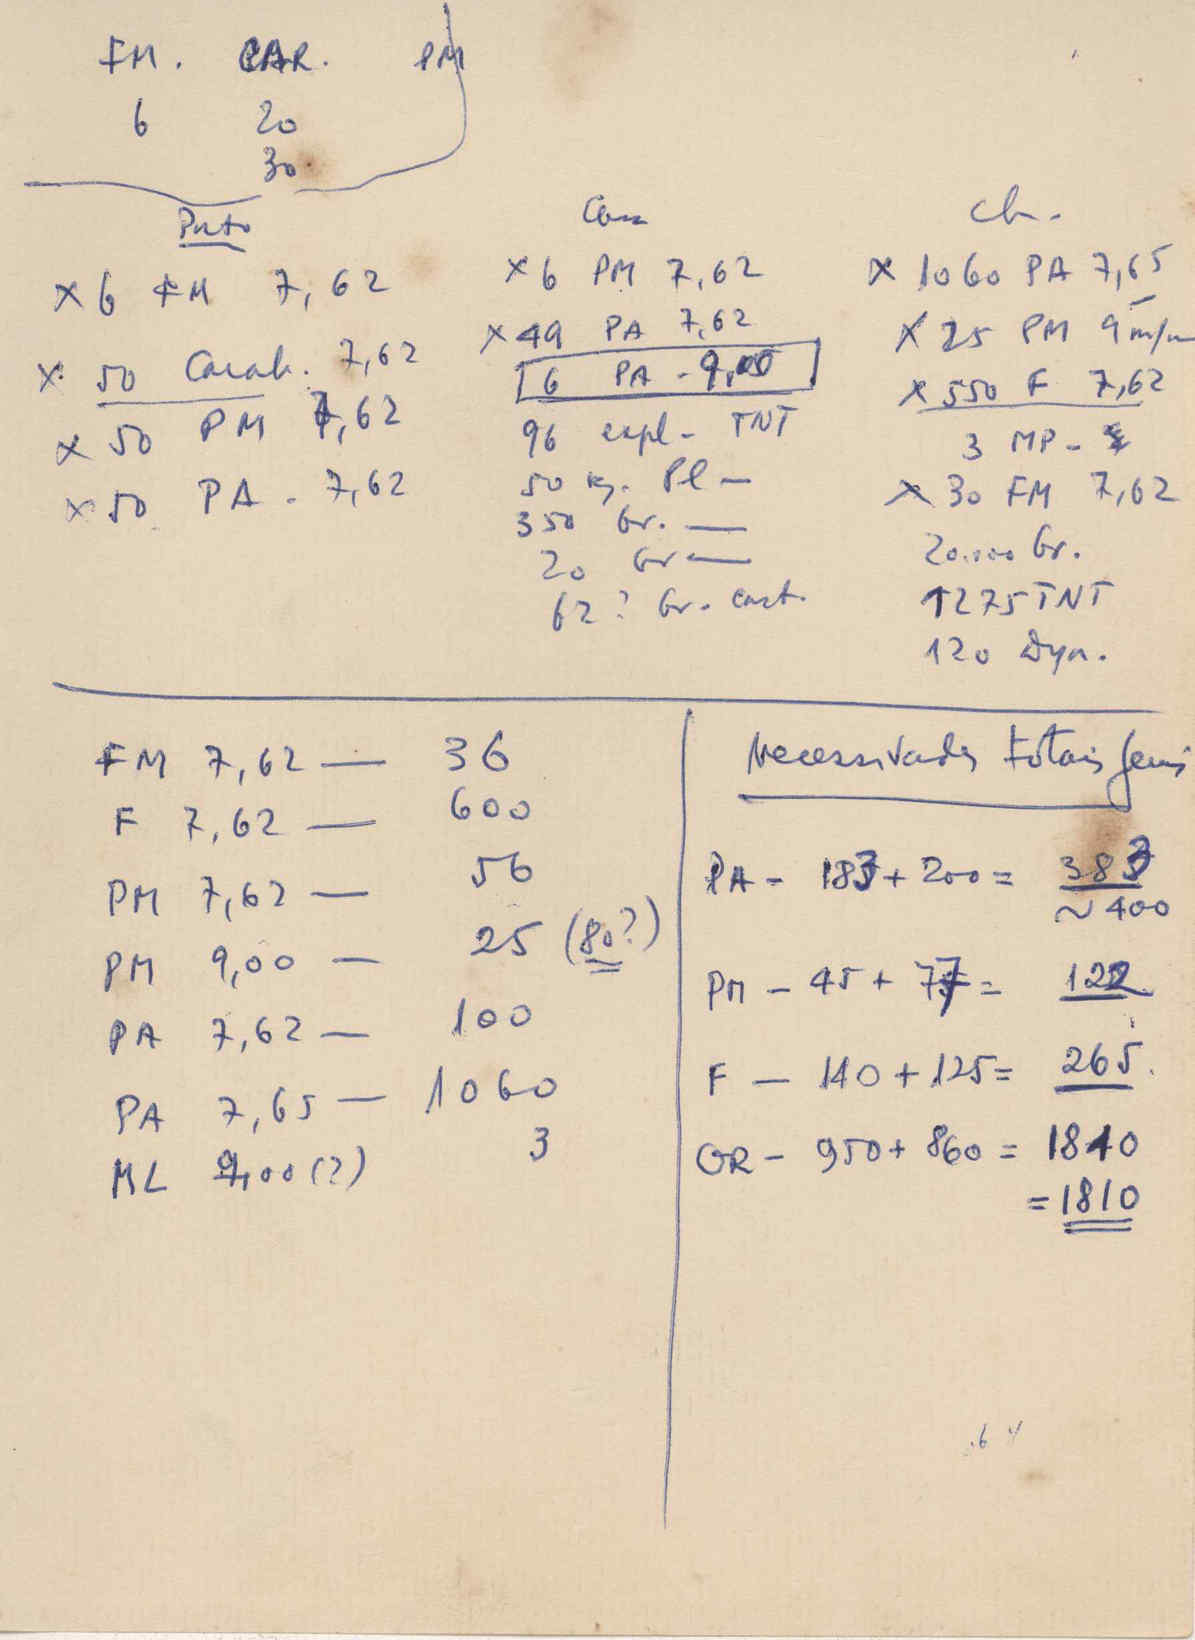 FM. CAR. PM
6 20
30
Puto
x 6 FM 7,62
x 50 Carab. 7,62
x 50 PM 7,62
x 50 PA - 7,62
Con
x 6 PM 7,62
x 49 PA 7,62
6 PA - 9,00
96 expl - TNT
50 kg. Pl —
350 Gr. —
20 Gr —
62? Gr. cart.
Ch.
x 1060 PA 7,65
x 25 PM 9 m/m
x 550 F 7,62
3 MP -
x 30 FM 7,62
20.000 Gr.
1275 TNT
120 Dyn.
FM 7,62 — 36
F 7,62 — 600
PM 7,62 — 56
PM 9,00 — 25 (80?)
PA 7,62 — 100
PA 7,65 — 1060
ML 9,00 (?) 3
Necessidades totais
PA - 183 + 200 = 383
~ 400
PM - 45 + 77 = 122
F — 140 + 125 = 265.
GR - 950 + 860 = 1840
= 1810